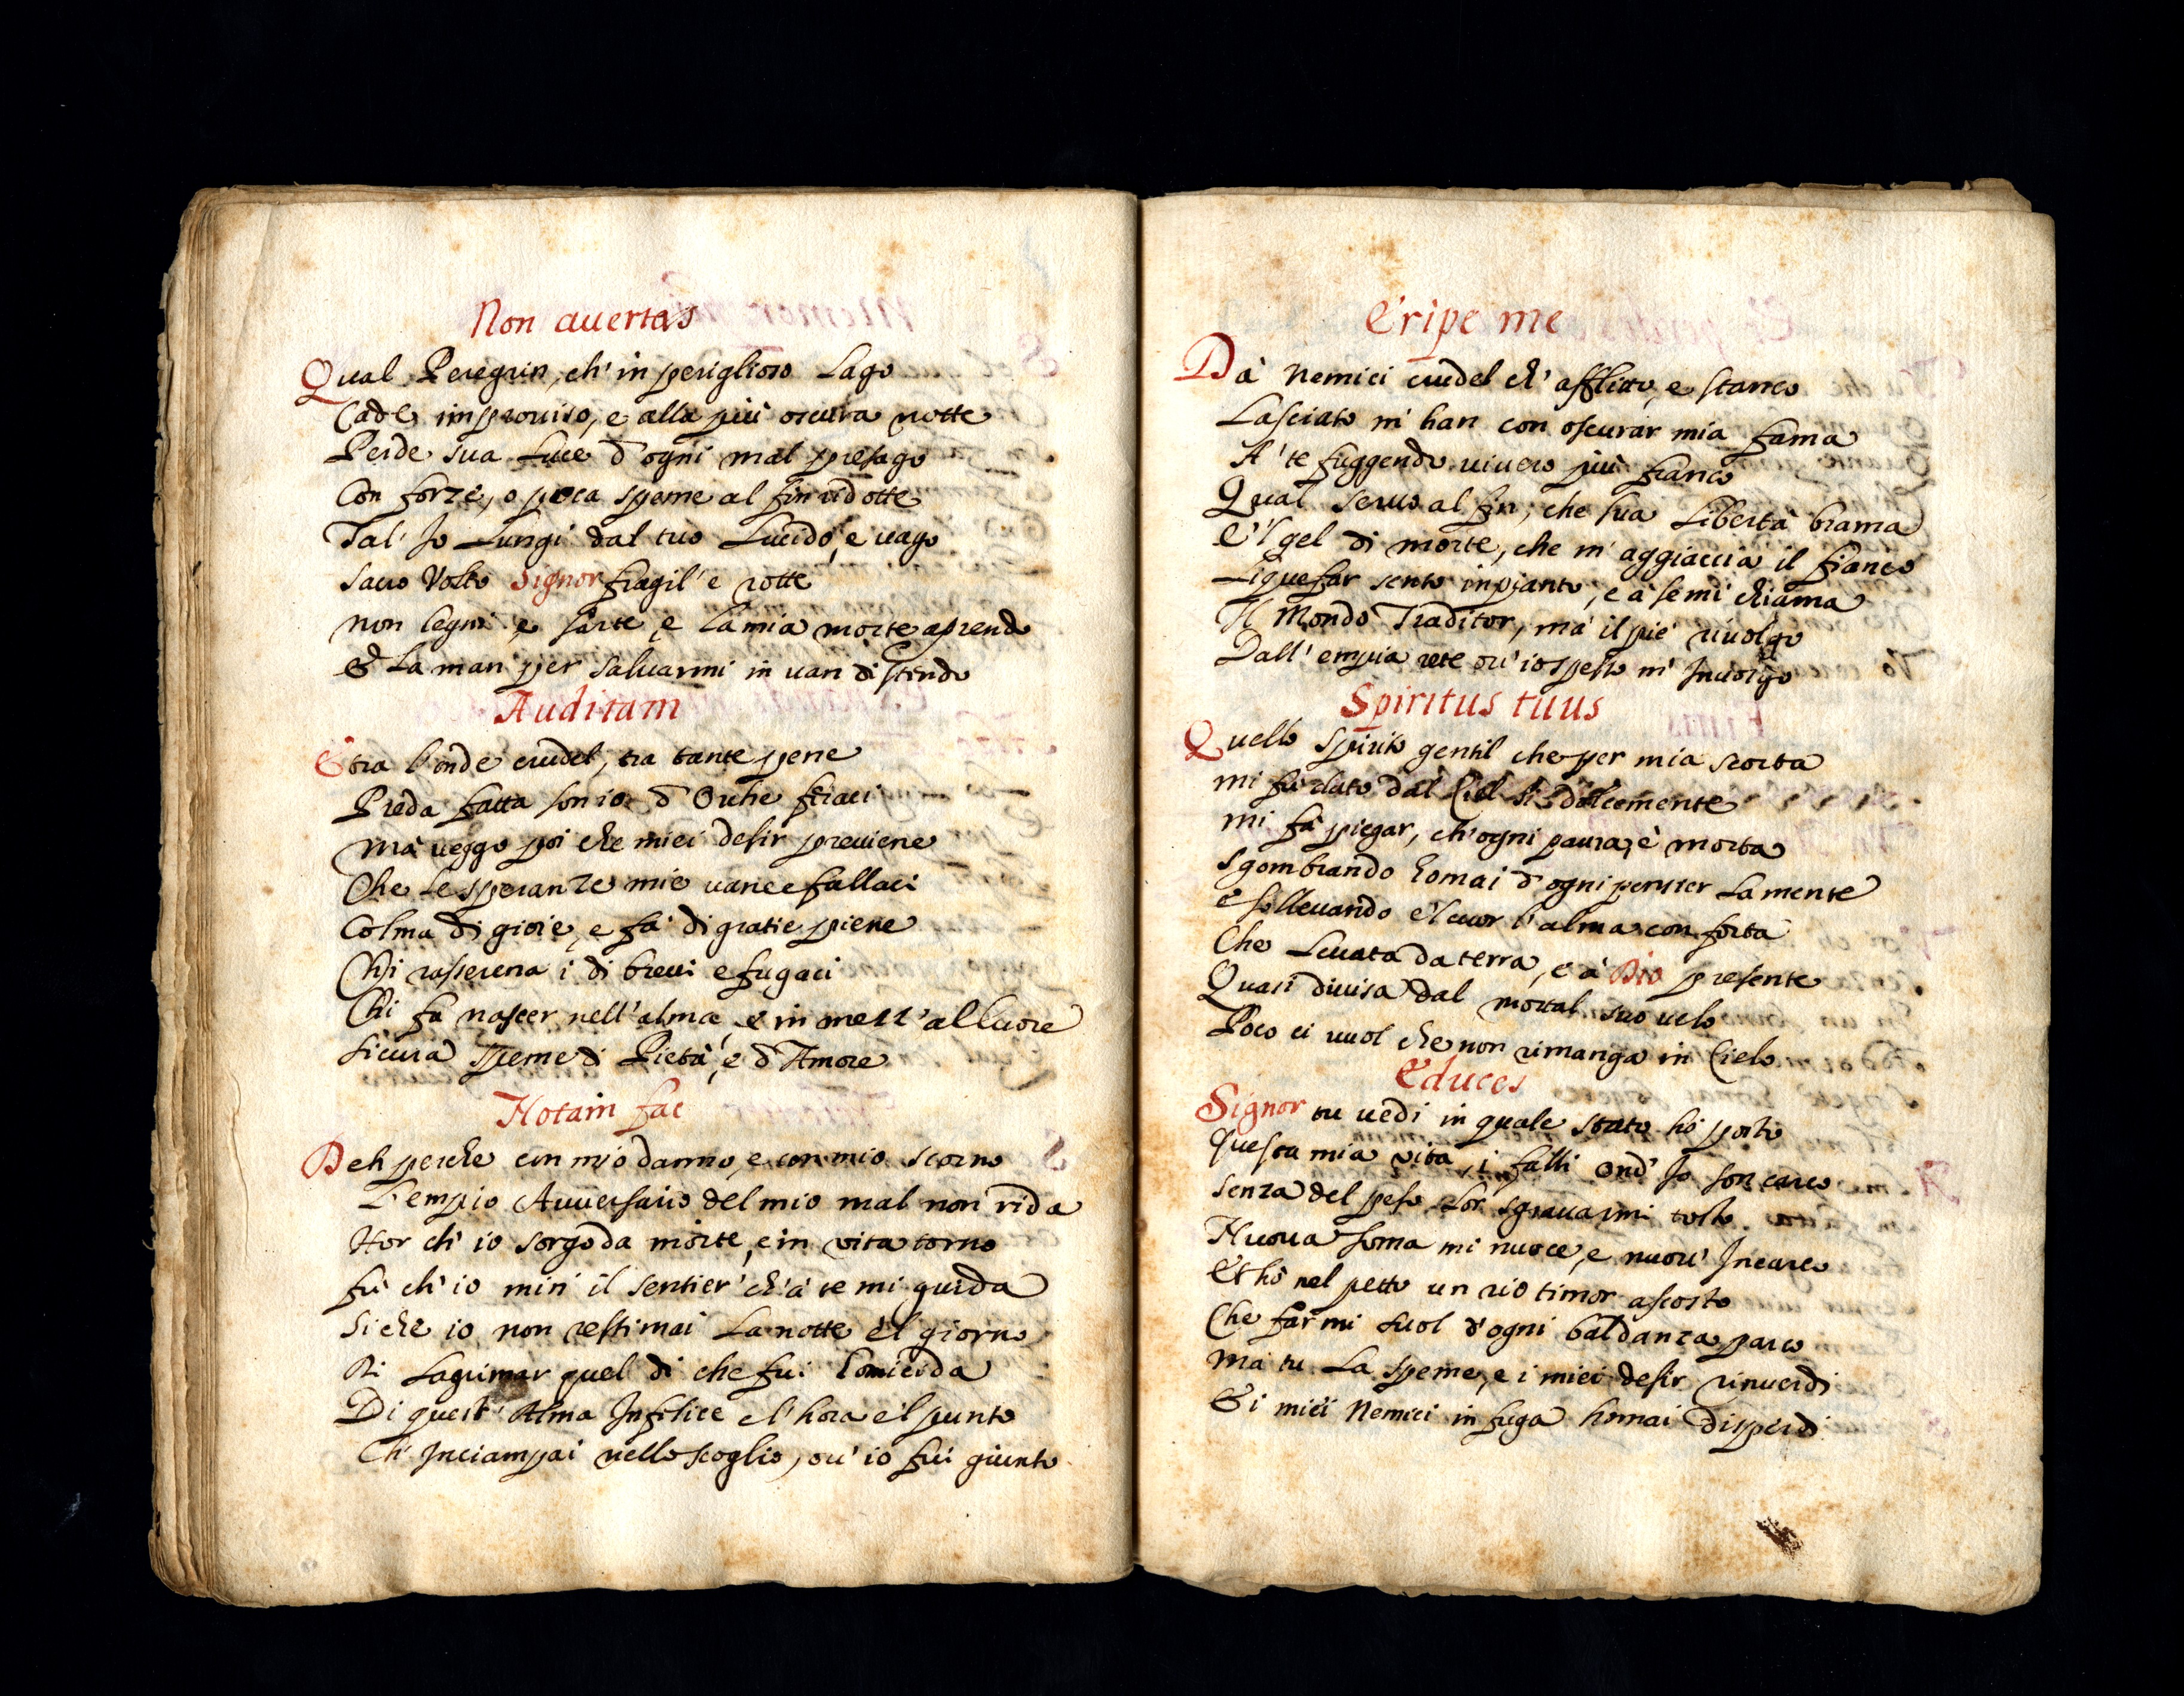 Non auertas
Qual Peregrin, ch' in periglioso Lago
Cade improuiso, e alla più oscura notte
Perde sua Luce d'ogni mal presago
Con forze, o poca speme al fin ridotte
Tal' Io Lungi dal tuo Lucido, e uago
Sacro Volto Signor fragil' e rotte
non legni e sarte, e la mia morte aprendo
& La man per saluarmi in uan distendo
Auditam
E tra l'onde crudel, tra tante pene
Preda fatta son io d'Orche
Mà ueggo poi che miei desir preuiene
Che Le speranze mie uane e fallaci
Colma di gioie, e fà di gratie piene
Chi rasserena i dì breui e fugaci
Chi fà nascer nell'alma, e in mezz'al Cuore
Sicura speme di Pietà, e d'Amore
Notam fac
Deh perche con mio danno, e con mio scorno
L'empio Auuersario del mio mal non rida
Hor ch' io sorgo da morte, e in vita torno
fà ch' io miri il sentier' ch' à te mi guida
Si che io non resti mai La notte e'l giorno
Di Lagrimar quel dì che fui homicida
Di quest' Alma Infelice e l'hora e'l punto
Ch' Inciampai nello scoglio, ou' io fui giunto
Eripe me
Dà Nemici crudel ch' afflitto, e stanco
Lasciato m' han con oscurar mia fama
A' te fuggendo uiuerò più franco
Qual seruo al fin, che sua Libertà brama
E'l gel di morte, che m' aggiaccia il fianco
Liquefar sento in pianto, e à se mi chiama
Il Mondo Traditor, mà il piè riuolgo
Dall' empia rete ou' io spesso m' Inuolgo
Spiritus tuus
Quello spirito gentil che per mia scorta
mi fù dato dal Ciel sì dolcemente
mi fà piegar, ch' ogni paura è morta
sgombrando homai d'ogni pensier La mente
e solleuando e'l cuor l'alma conforta
Che Leuata da terra, e à Dio presente
Quasi diuisa dal mortal suo uelo
Poco ci uuol che non rimanga in Cielo
Educes
Signor tu uedi in quale stato hò posto
Questa mia vita, i falli ond' Io son carco
senza del peso Lor sgrauarmi tosto
Nuoua soma mi nuoce, e nuou' Incarco
Et hò nel petto un rio timor ascosto
Che farmi suol d'ogni baldanza parco
ma tu La speme, e i miei desir rinuerdi
& i miei Nemici in fuga homai disperdi